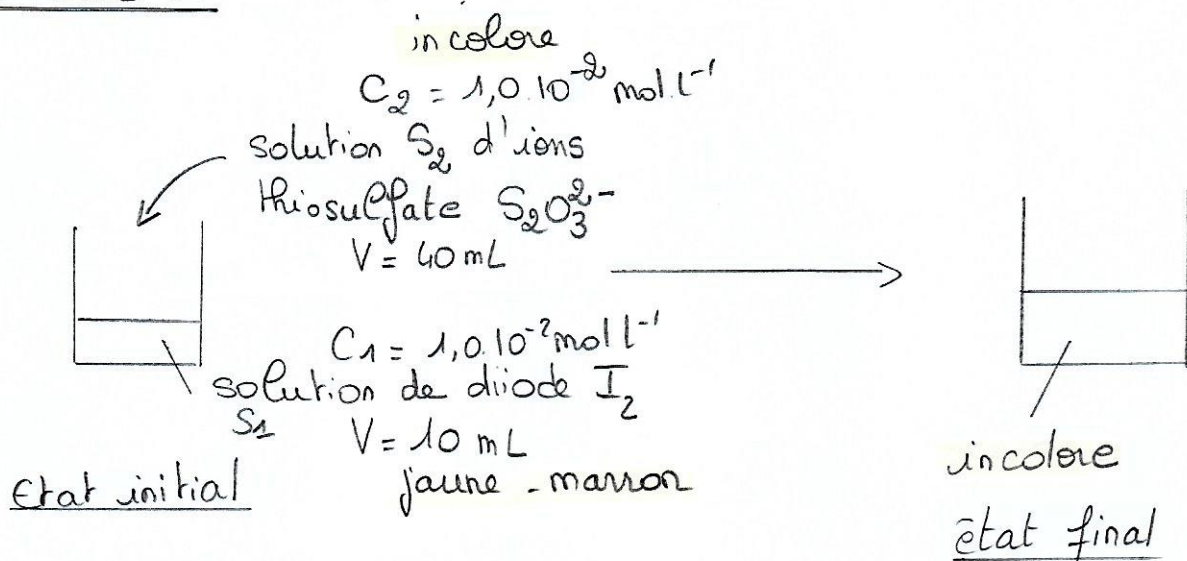 incolore
C₂ = 1,0.10⁻² mol.l⁻¹
solution S₂ d'ions
thiosulfate S₂O₃²⁻
V = 40 mL
C₁ = 1,0.10⁻² mol l⁻¹
solution de diiode I₂
S₁
V = 10 mL
jaune - marron
Etat initial
incolore
état final